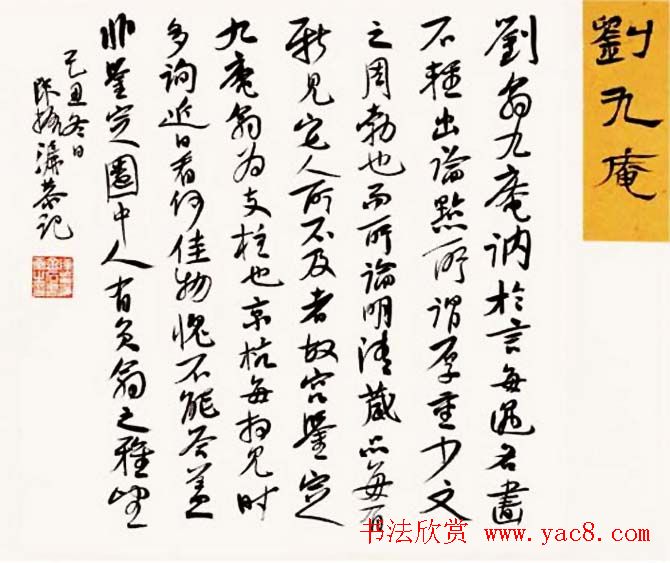 劉九庵
劉翁九庵訥於言每遇名畫
不輕出論點所謂厚重少文
之周勃也而所論明清藏品每有
新見它人所不及者故宫鑒定
九庵翁为支柱也京杭每相見时
多詢近日看何佳物愧不能答盖
非鑒定圈中人有負翁之雅望
己丑冬日
陈振濂恭记
书法欣赏 www.yac8.com